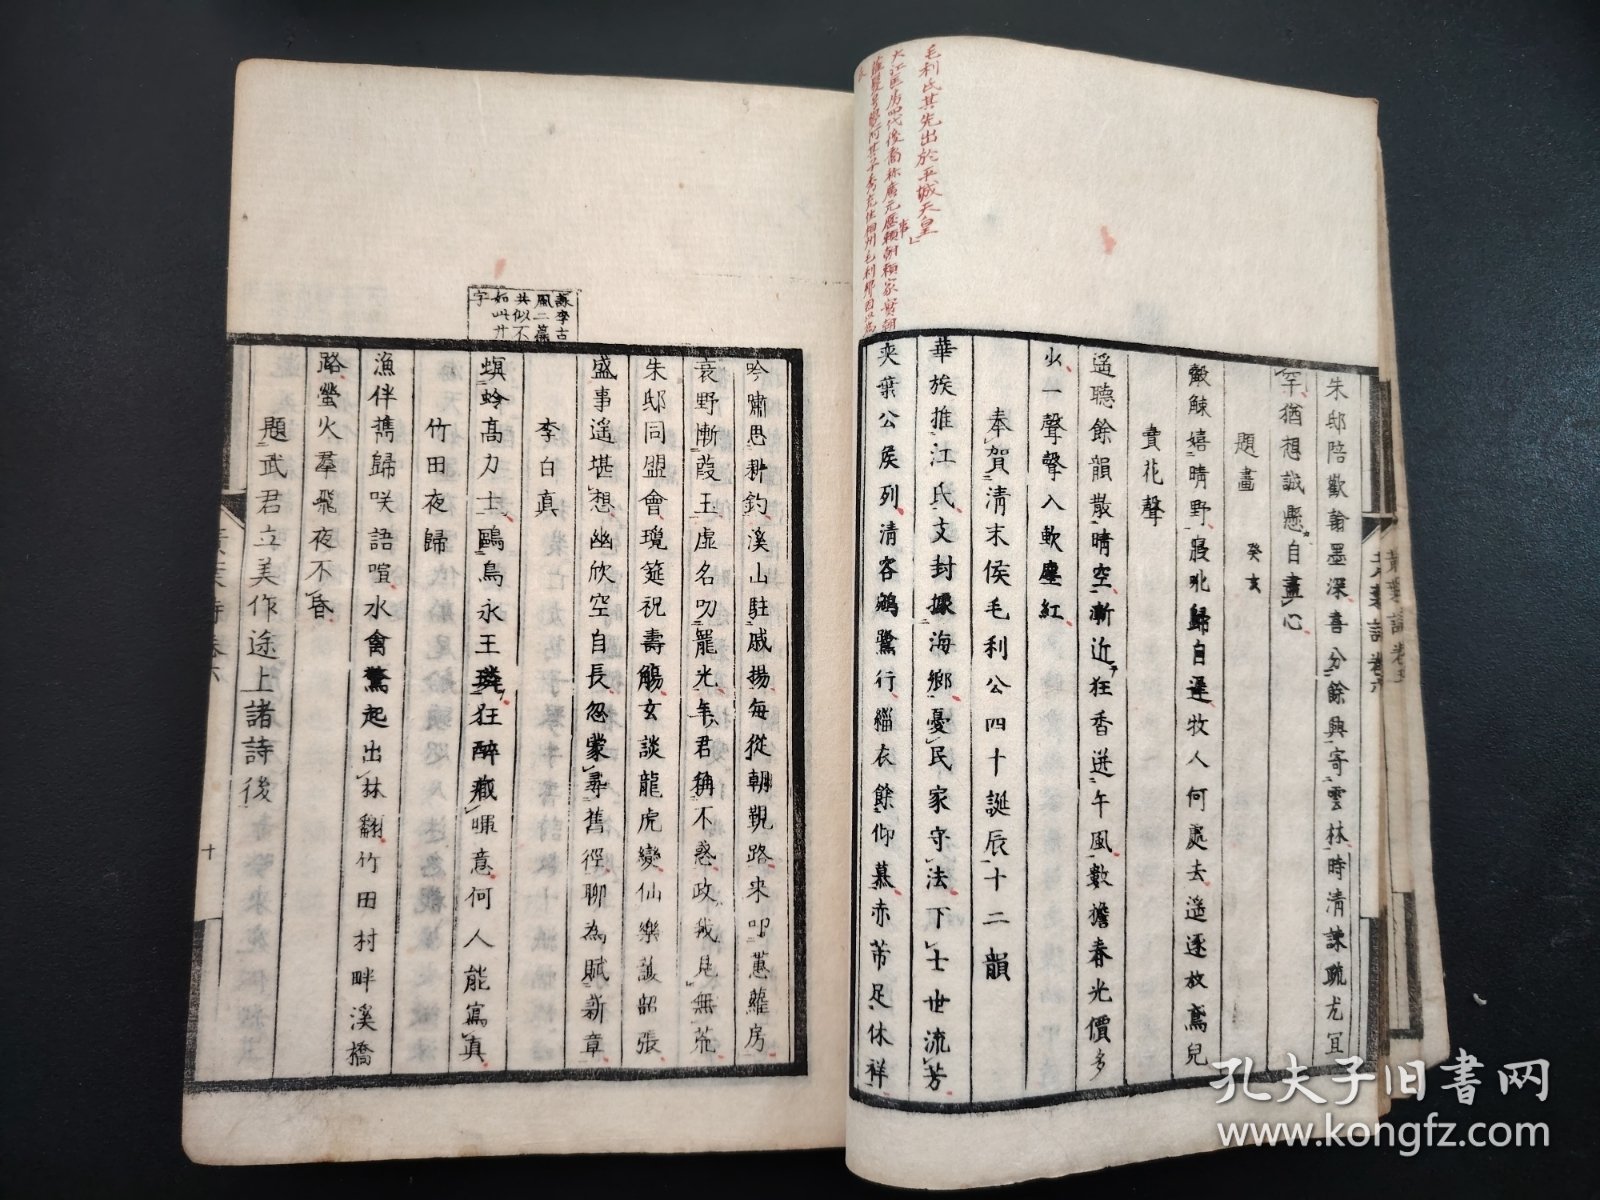 毛利氏其先出於平城天皇
大江匡房四代後裔称廣元歷賴朝賴家實朝
朱邸陪歡翰墨深喜分餘興寄雲林時清諫疏尤宜
罕猶想誠懸自畫心
題畫 癸亥
觳觫嬉晴野寢吪歸自遲牧人何處去遙逐放鳶兒
賣花聲
遙聽餘韻散晴空漸近狂香迸午風數擔春光價多
少一聲聲入軟塵紅
奉賀清末侯毛利公四十誕辰十二韻
華族推江氏支封據海鄉憂民家守法下士世流芳
奕葉公侯列清容鵷鷺行緇衣餘仰慕赤芾足休祥
吟嘯思耕釣溪山駐戚揚每從朝覲路來叩蕙蘿房
衰野慚葭玉虛名叨寵光年君稱不惑政我見無荒
朱邸同盟會瓊筵祝壽觴玄談龍虎變仙樂護韶張
盛事遙堪想幽欣空自長忽蒙尋舊徑聊為賦新章
李白真
螟蛉高力士鷗鳥永王璘狂醉藏暉意何人能寫真
竹田夜歸
漁伴攜歸咲語喧水禽驚起出林翻竹田村畔溪橋
路螢火羣飛夜不昏
題武君立美作途上諸詩後
詠李古
風二篇
共似不
如此廿
字
十
孔夫子旧書网
www.kongfz.com